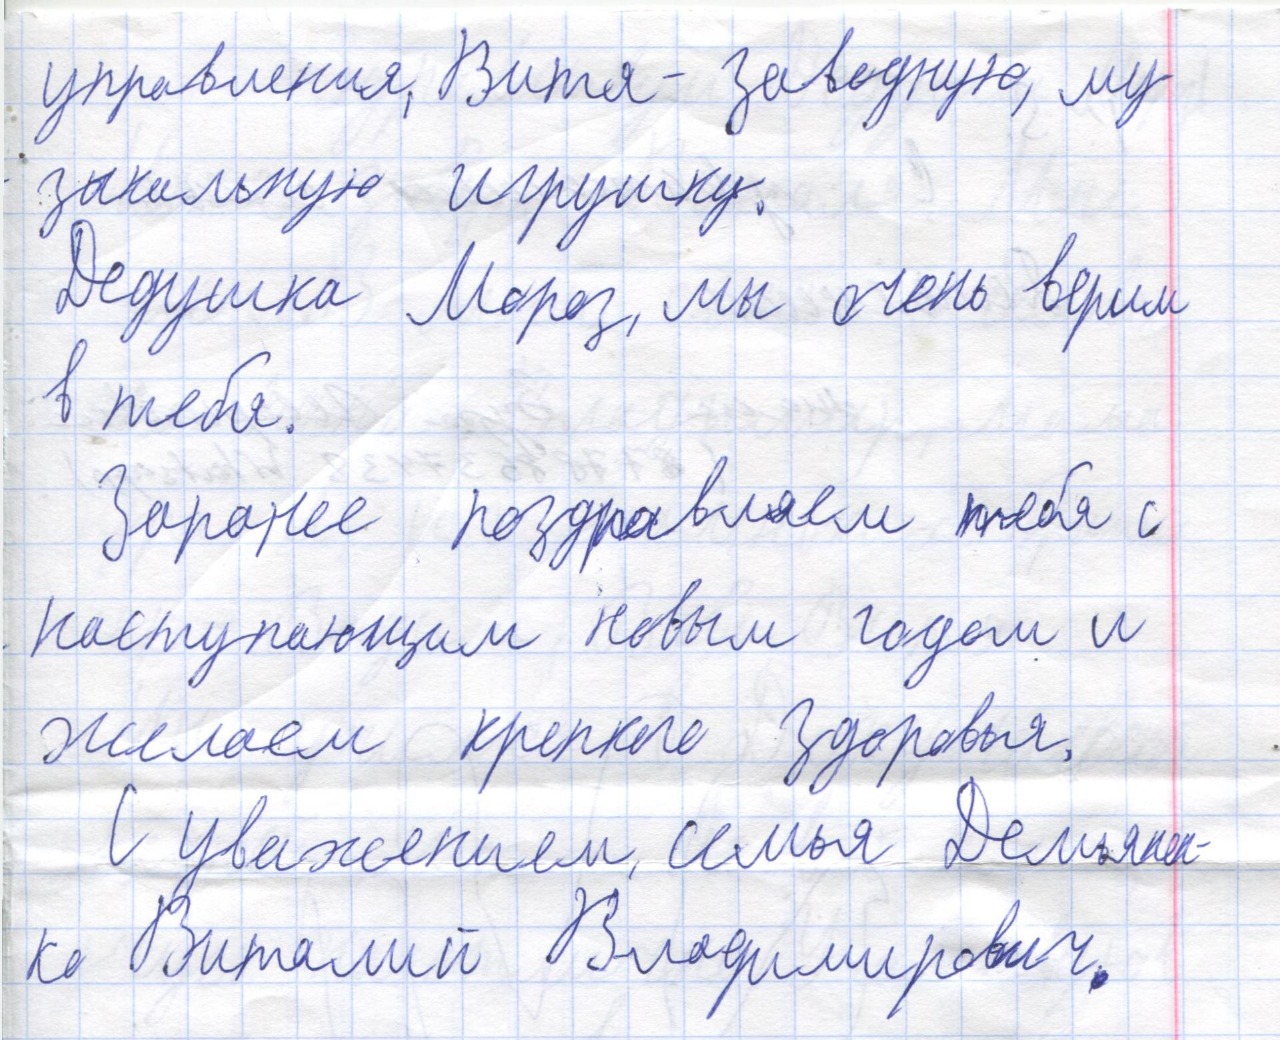 управления, Витя - заводную, му
зыкальную игрушку.
Дедушка Мороз, мы очень верим
в тебя.
Заранее поздравляем тебя с
наступающим новым годом и
желаем крепкого здоровья.
С уважением, семья Демьянен-
ко Виталий Владимирович.